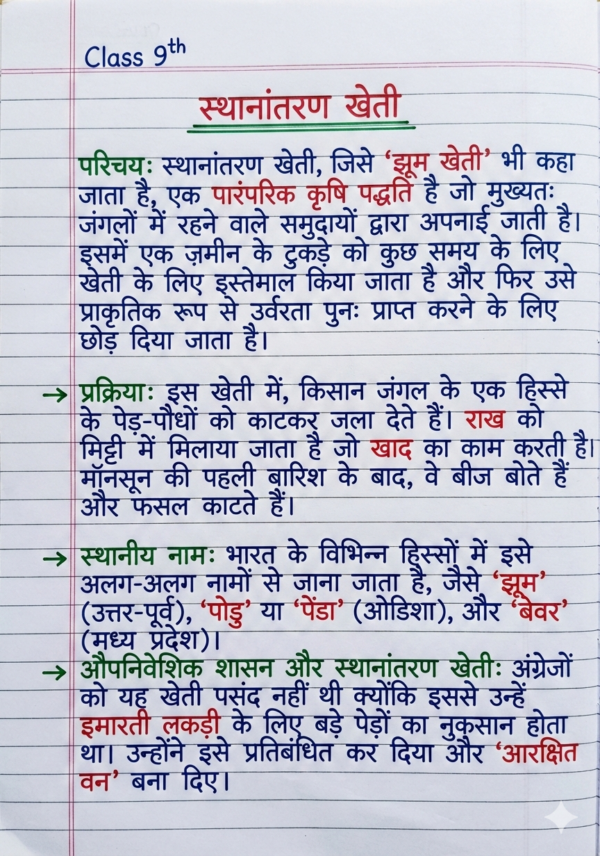 Class 9th
स्थानांतरण खेती
परिचय: स्थानांतरण खेती, जिसे ‘झूम खेती’ भी कहा
जाता है, एक पारंपरिक कृषि पद्धति है जो मुख्यतः
जंगलों में रहने वाले समुदायों द्वारा अपनाई जाती है।
इसमें एक ज़मीन के टुकड़े को कुछ समय के लिए
खेती के लिए इस्तेमाल किया जाता है और फिर उसे
प्राकृतिक रूप से उर्वरता पुनः प्राप्त करने के लिए
छोड़ दिया जाता है।
→ प्रक्रिया: इस खेती में, किसान जंगल के एक हिस्से
के पेड़-पौधों को काटकर जला देते हैं। राख को
मिट्टी में मिलाया जाता है जो खाद का काम करती है।
मॉनसून की पहली बारिश के बाद, वे बीज बोते हैं
और फसल काटते हैं।
→ स्थानीय नाम: भारत के विभिन्न हिस्सों में इसे
अलग-अलग नामों से जाना जाता है, जैसे ‘झूम’
(उत्तर-पूर्व), ‘पोडु’ या ‘पेंडा’ (ओडिशा), और ‘बेवर’
(मध्य प्रदेश)।
→ औपनिवेशिक शासन और स्थानांतरण खेती: अंग्रेजों
को यह खेती पसंद नहीं थी क्योंकि इससे उन्हें
इमारती लकड़ी के लिए बड़े पेड़ों का नुकसान होता
था। उन्होंने इसे प्रतिबंधित कर दिया और ‘आरक्षित
वन’ बना दिए।